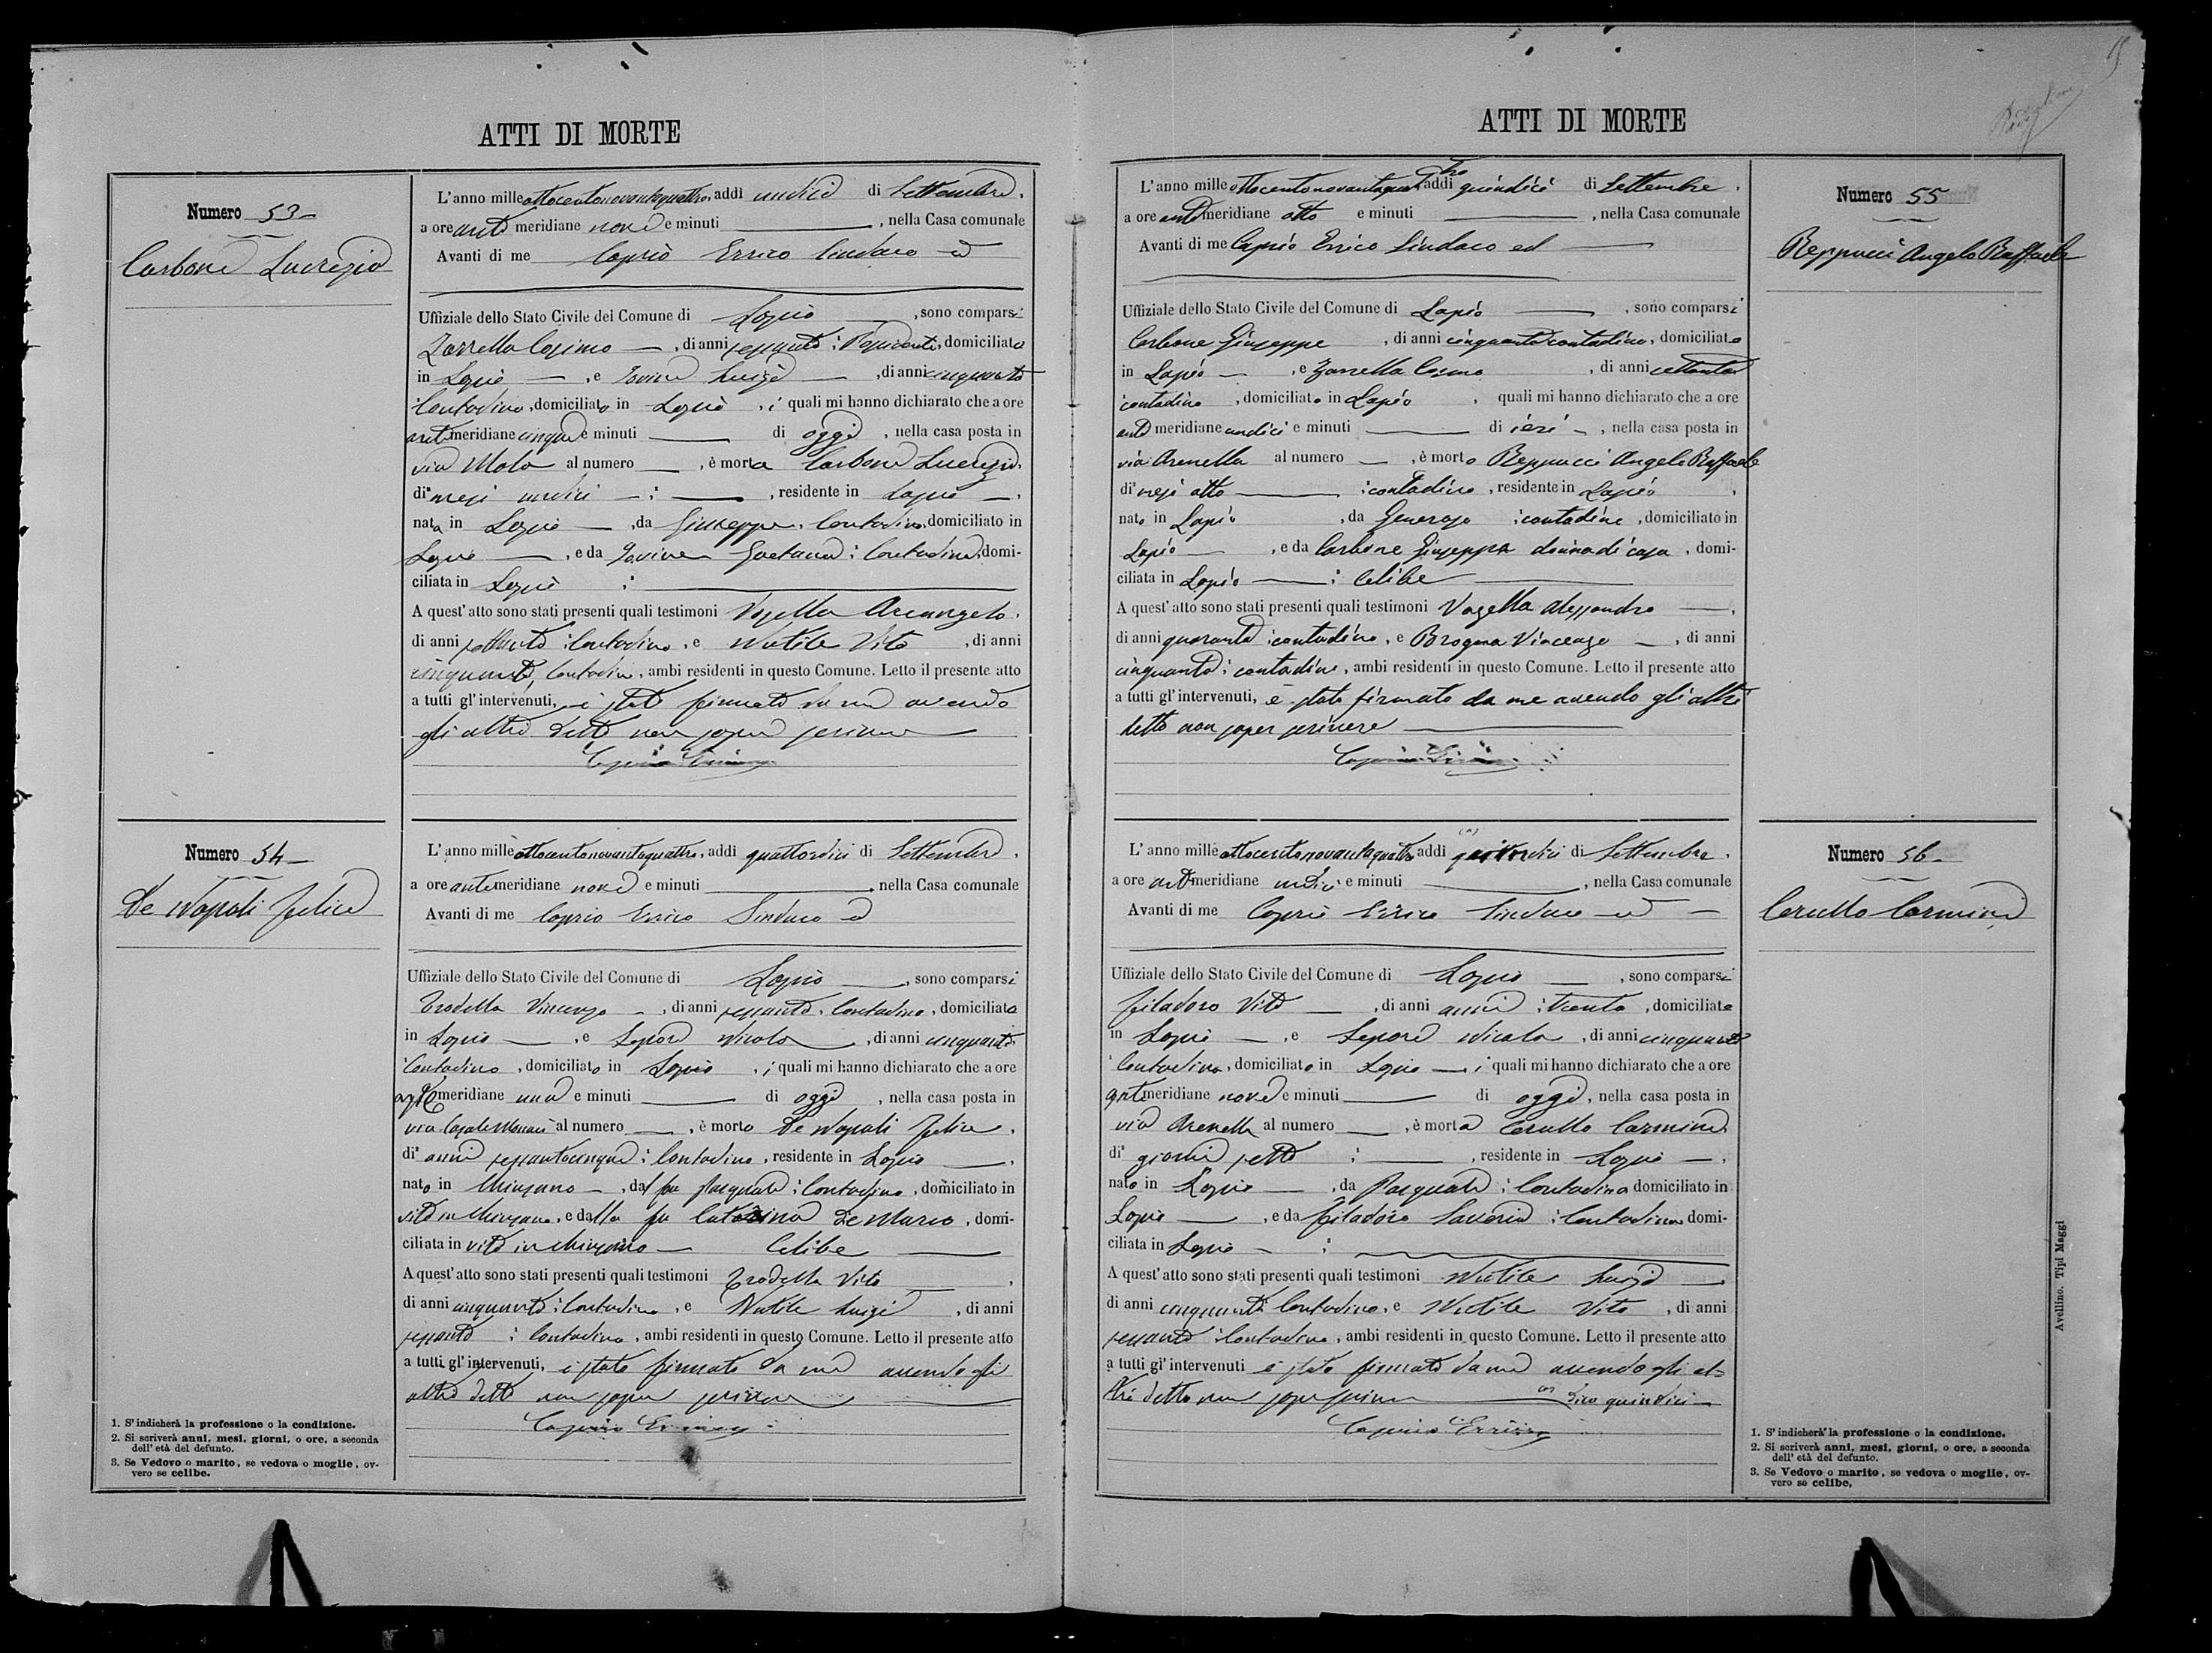 ATTI DI MORTE
Numero 53
Carbone Lucrezia
L'anno mille ottocentonovantaquattro, addì undici di Settembre,
a ore anti meridiane nove e minuti , nella Casa comunale
Avanti di me Caprio Errico Sindaco ed
Uffiziale dello Stato Civile del Comune di Lapio , sono comparsi
Zarrella Cosimo , di anni sessanta ; , domiciliato
in Lapio , e Iovine Luigi , di anni cinquanta
Contadino, domiciliato in Lapio , i quali mi hanno dichiarato che a ore
anti meridiane cinque e minuti di oggi , nella casa posta in
via Mola al numero , è morta Carbone Lucrezia,
di mesi undici ; , residente in Lapio ,
nata in Lapio , da Giuseppe, Contadino, domiciliato in
Lapio , e da Iovine Gaetana ; Contadina, domi-
ciliata in Lapio ;
A quest' atto sono stati presenti quali testimoni Vozella Arcangelo,
di anni settanta ; Contadino, e Nutile Vito , di anni
cinquanta, Contadino, ambi residenti in questo Comune. Letto il presente atto
a tutti gl' intervenuti, è stato firmato da me avendo
gli altri detto non saper scrivere
Caprio Errico
Numero 54
De Napoli Felice
L' anno mille ottocentonovantaquattro, addì quattordici di Settembre,
a ore antimeridiane nove e minuti nella Casa comunale
Avanti di me Caprio Errico Sindaco ed
Uffiziale dello Stato Civile del Comune di Lapio , sono comparsi
Trodella Vincenzo , di anni sessanta, Contadino, domiciliato
in Lapio , e Lepore Nicola , di anni cinquanta
Contadino , domiciliato in Lapio , i quali mi hanno dichiarato che a ore
ante meridiane una e minuti di oggi , nella casa posta in
via al numero , è morto De Napoli Felice ,
di anni sessantacinque ; Contadino, residente in Lapio ,
nato in Chiusano , dal fu Pasquale ; Contadino, domiciliato in
vita in Chiusano, e dalla fu Caterina De Marco, domi-
ciliata in vita in Chiusano Celibe
A quest' atto sono stati presenti quali testimoni Trodella Vito ,
di anni cinquanta ; Contadino, e Nutile Luigi , di anni
sessanta ; Contadino, ambi residenti in questo Comune. Letto il presente atto
a tutti gl' intervenuti, è stato firmato da me avendo gli
altri detto non saper scrivere
Caprio Errico
1. S' indicherà la professione o la condizione.
2. Si scriverà anni, mesi, giorni, o ore, a seconda
dell' età del defunto.
3. Se Vedovo o marito, se vedova o moglie, ov-
vero se celibe.
ATTI DI MORTE
Numero 55
Reppucci Angelo Raffaele
L'anno mille ottocentonovantaquattro addì quindici di Settembre,
a ore anti meridiane otto e minuti , nella Casa comunale
Avanti di me Caprio Errico Sindaco ed
Uffiziale dello Stato Civile del Comune di Lapio , sono comparsi
Carbone Giuseppe , di anni cinquanta contadino, domiciliato
in Lapio , e Zarrella Cosmo , di anni settanta
contadino , domiciliato in Lapio , quali mi hanno dichiarato che a ore
anti meridiane undici e minuti di ieri , nella casa posta in
via Arenella al numero , è morto Reppucci Angelo Raffaele
di mesi otto ; contadino, residente in Lapio ,
nato in Lapio , da Generoso ; contadino, domiciliato in
Lapio , e da Carbone Giuseppa donna di casa, domi-
ciliata in Lapio ; Celibe
A quest' atto sono stati presenti quali testimoni Vozella Alessandro ,
di anni quaranta ; contadino, e Brogna Vincenzo , di anni
cinquanta ; contadino, ambi residenti in questo Comune. Letto il presente atto
a tutti gl' intervenuti, è stato firmato da me avendo gli altri
detto non saper scrivere
Numero 56
Cerullo Carmina
L' anno mille ottocentonovantaquattro addì di Settembre,
a ore anti meridiane undici e minuti , nella Casa comunale
Avanti di me Caprio Errico Sindaco ed
Uffiziale dello Stato Civile del Comune di Lapio , sono comparsi
Filadoro Vito , di anni anni ; trenta , domiciliato
in Lapio , e Lepore Nicola , di anni cinquanta
Contadino, domiciliato in Lapio , i quali mi hanno dichiarato che a ore
anti meridiane nove e minuti di oggi, nella casa posta in
via Arenella al numero , è morta Cerullo Carmina,
di giorni sette ; , residente in Lapio ,
nato in Lapio , da Pasquale ; Contadino domiciliato in
Lapio , e da Filadoro Saveria ; Contadina domi-
ciliata in Lapio ;
A quest' atto sono stati presenti quali testimoni Nutile Luigi ,
di anni cinquanta Contadino, e Nutile Vito , di anni
sessanta ; Contadino, ambi residenti in questo Comune. Letto il presente atto
a tutti gl' intervenuti è stato firmato da me avendo gli al-
tri detto non saper scrivere (a) dico quindici
Caprio Errico
1. S' indicherà la professione o la condizione.
2. Si scriverà anni, mesi, giorni, o ore, a seconda
dell' età del defunto.
3. Se Vedovo o marito, se vedova o moglie, ov-
vero se celibe.
Avellino. Tipi Maggi